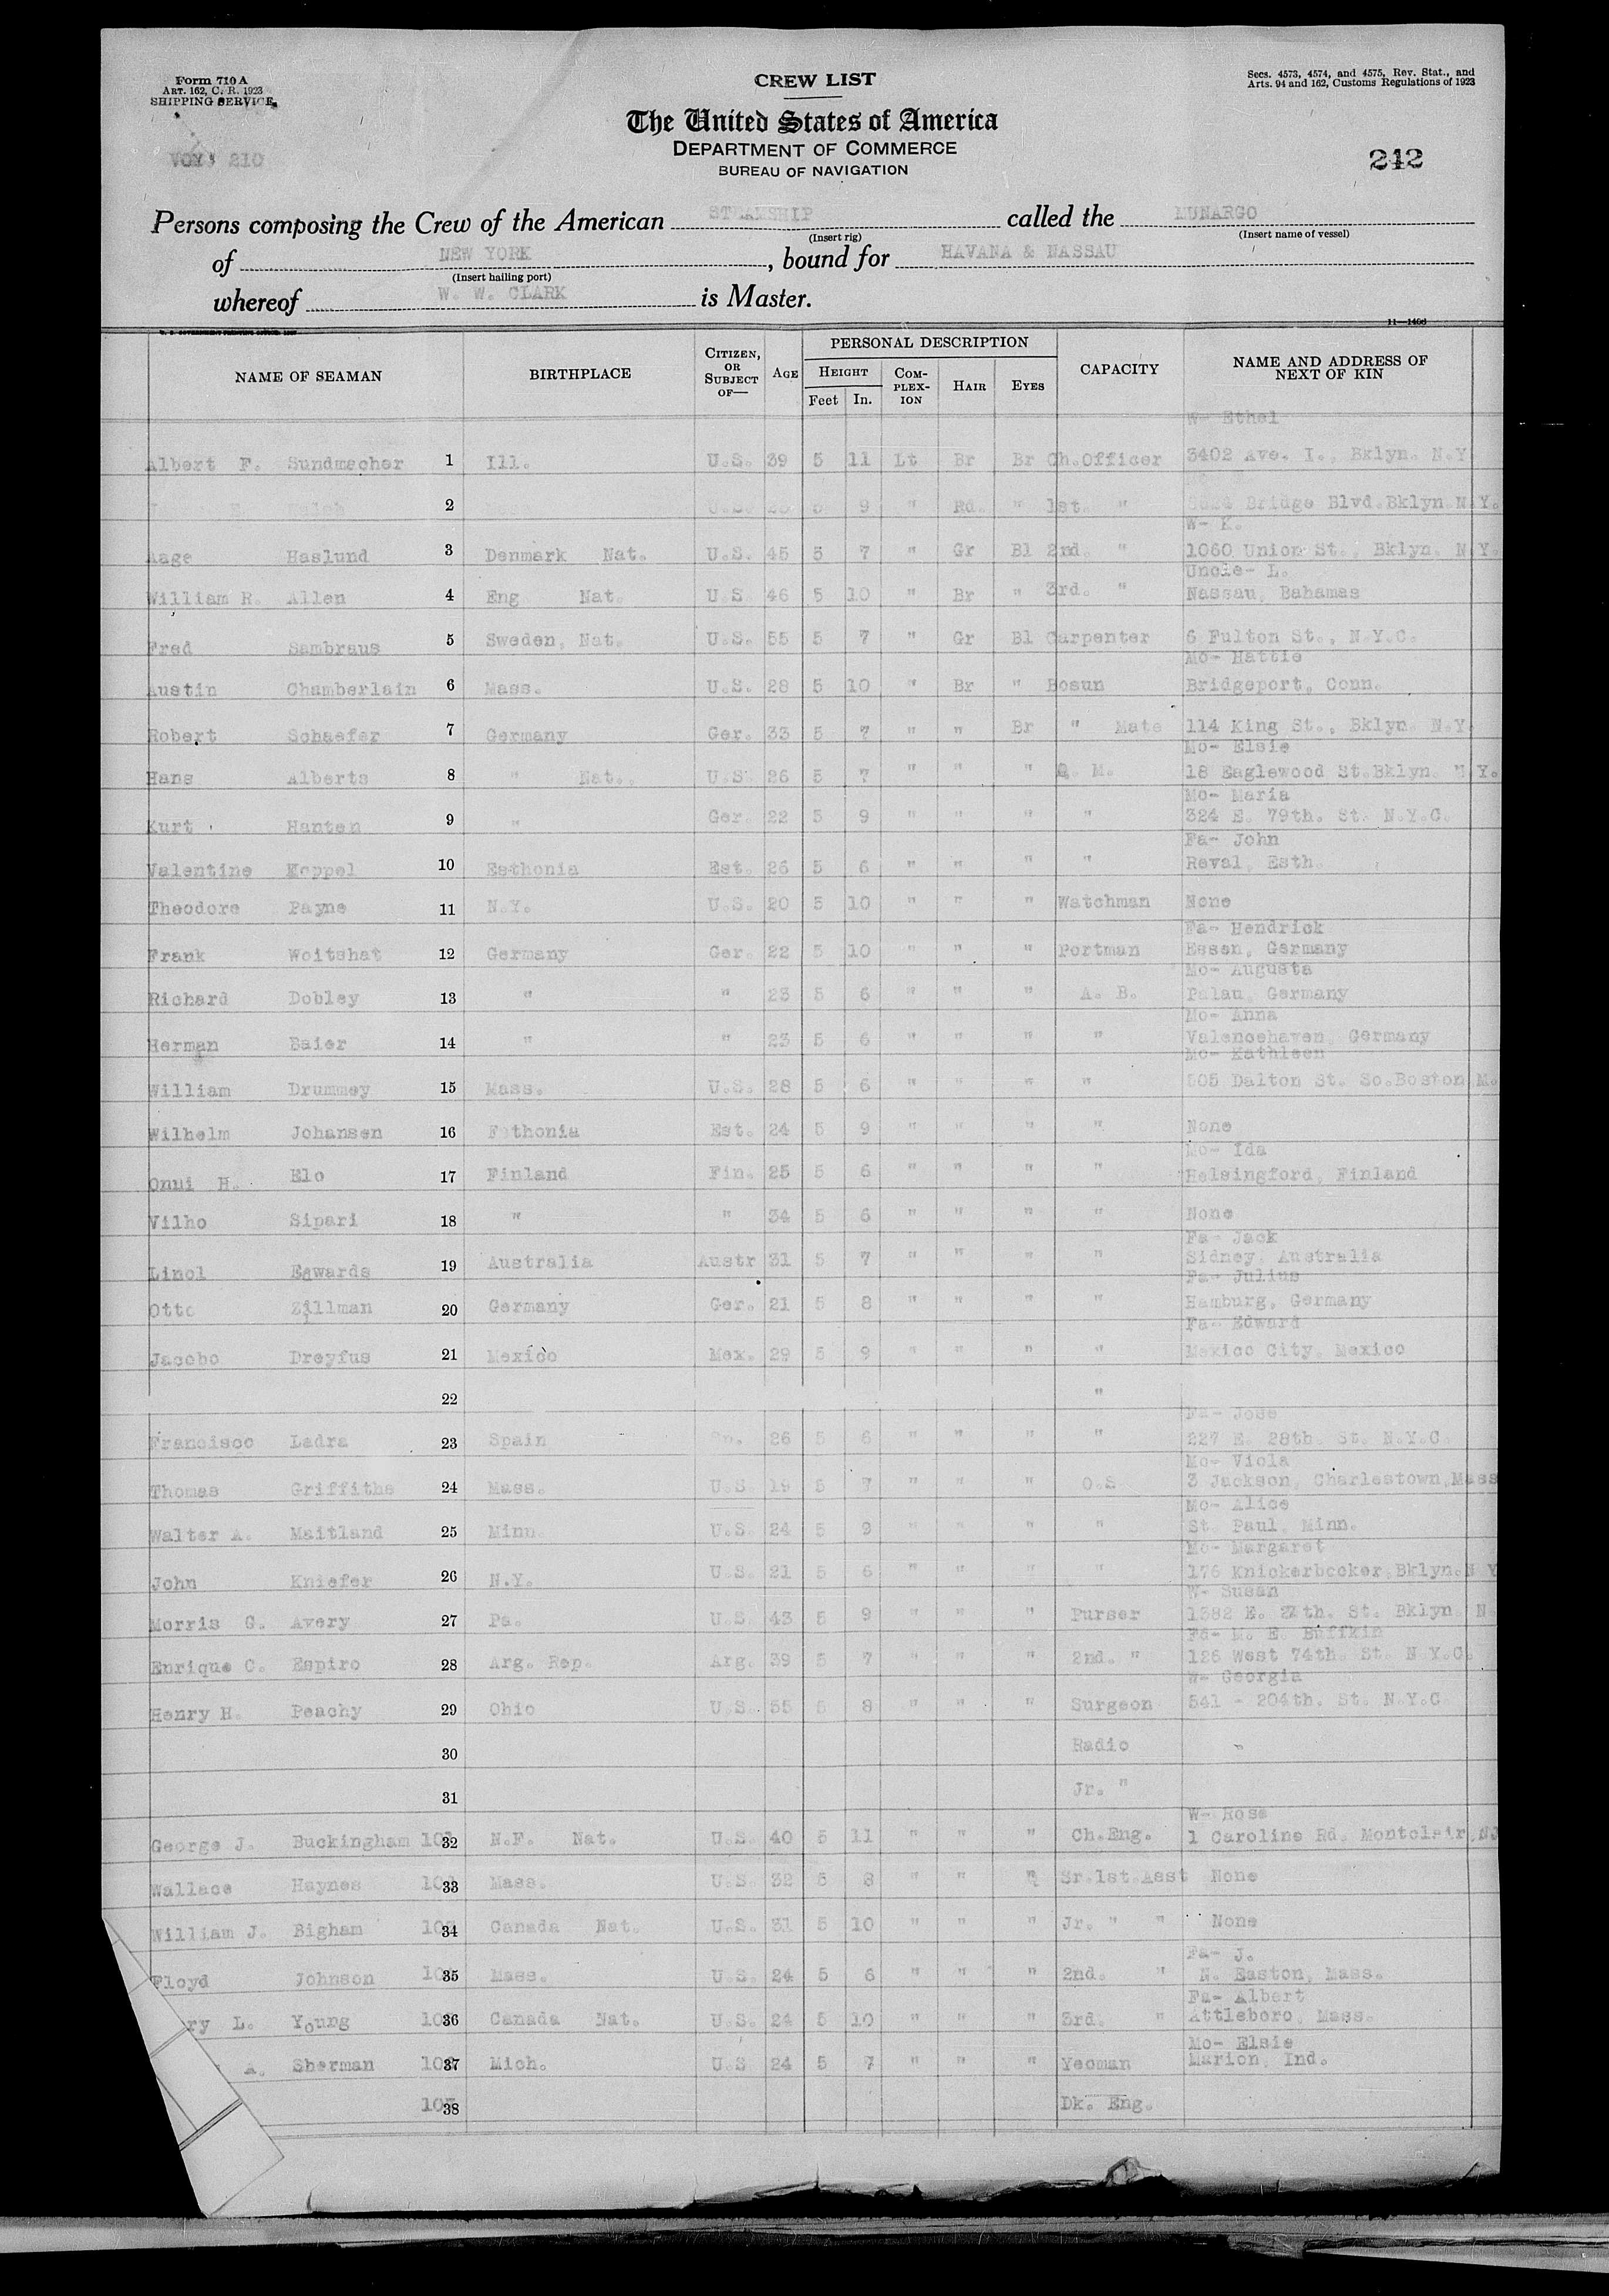 Form 710 A
ART. 162, C. R. 1923
SHIPPING SERVICE
VOY. 210
CREW LIST
The United States of America
DEPARTMENT OF COMMERCE
BUREAU OF NAVIGATION
Secs. 4573, 4574, and 4575, Rev. Stat., and
Arts. 94 and 162, Customs Regulations of 1923
242
Persons composing the Crew of the American STEAMSHIP called the MUNARGO
(Insert rig) (Insert name of vessel)
of NEW YORK , bound for HAVANA & NASSAU
(Insert hailing port)
whereof W. W. CLARK is Master.
11—1406
NAME OF SEAMAN BIRTHPLACE CITIZEN, OR SUBJECT OF— AGE PERSONAL DESCRIPTION CAPACITY NAME AND ADDRESS OF NEXT OF KIN
HEIGHT COMPLEXION HAIR EYES
Feet In.
W- Ethel
Albert F. Sundmacher 1 Ill. U.S. 39 5 11 Lt Br Br Ch.Officer 3402 Ave. I., Bklyn. N.Y
2 U.S. 5 9 " Rd. " 1st. " Bridge Blvd.Bklyn N.Y.
W- K.
Aage Haslund 3 Denmark Nat. U.S. 45 5 7 " Gr Bl 2nd. " 1060 Union St., Bklyn. N.Y.
Uncle- L.
William R. Allen 4 Eng Nat. U.S. 46 5 10 " Br " 3rd. " Nassau, Bahamas
Fred Sambraus 5 Sweden, Nat. U.S. 55 5 7 " Gr Bl Carpenter 6 Fulton St., N.Y.C.
Mo- Hattie
Austin Chamberlain 6 Mass. U.S. 28 5 10 " Br " Bosun Bridgeport, Conn.
Robert Schaefer 7 Germany Ger. 33 5 7 " " Br " Mate 114 King St., Bklyn. N.Y.
Mo- Elsie
Hans Alberts 8 " Nat. U.S. 26 5 7 " " " Q. M. 18 Eaglewood St.Bklyn. N.Y.
Mo- Maria
Kurt Hanten 9 " Ger. 22 5 9 " " " " 324 E. 79th. St. N.Y.C.
Fa- John
Valentine Koppel 10 Esthonia Est. 26 5 6 " " " " Reval, Esth.
Theodore Payne 11 N.Y. U.S. 20 5 10 " " " Watchman None
Fa- Hendrick
Frank Woitshat 12 Germany Ger. 22 5 10 " " " Portman Essen, Germany
Mo- Augusta
Richard Dobley 13 " " 23 5 6 " " " A. B. Palau, Germany
Mo- Anna
Herman Baier 14 " " 23 5 6 " " " " Valencehaven, Germany
Mo- Kathleen
William Drummey 15 Mass. U.S. 28 5 6 " " " " 505 Dalton St. So.Boston M.
Wilhelm Johansen 16 Esthonia Est. 24 5 9 " " " " None
Mo- Ida
Onni H. Elo 17 Finland Fin. 25 5 6 " " " Helsingford, Finland
Vilho Sipari 18 " " 34 5 6 " " " " None
Fa- Jack
Linol Edwards 19 Australia Austr 31 5 7 " " " " Sidney, Australia
Fa- Julius
Otto Zillman 20 Germany Ger. 21 5 8 " " " " Hamburg, Germany
Fa- Edward
Jacobo Dreyfus 21 Mexico Mex. 29 5 9 " " " " Mexico City, Mexico
22 "
Fa- Jose
Francisco Ladra 23 Spain Sp. 26 5 6 " " " " 227 E. 28th. St. N.Y.C.
Mo- Viola
Thomas Griffiths 24 Mass. U.S. 19 5 7 " " " O.S 3 Jackson, Charlestown,Mass
Mo- Alice
Walter A. Maitland 25 Minn. U.S. 24 5 9 " " " " St. Paul, Minn.
Mo- Margaret
John Kniefer 26 N.Y. U.S. 21 5 6 " " " " 176 Knickerbocker,Bklyn.N Y
W- Susan
Morris G. Avery 27 Pa. U.S. 43 5 9 " " " Purser 1382 E. 27th. St. Bklyn. N.
Fa- M. E. Buffkin
Enrique C. Espiro 28 Arg. Rep. Arg. 39 5 7 " " " 2nd. " 126 West 74th. St. N.Y.C.
W- Georgia
Henry H. Peachy 29 Ohio U.S. 55 5 8 " " " Surgeon 541 - 204th. St. N.Y.C.
30 Radio
31 Jr. "
W- Rose
George J. Buckingham 32 N.F. Nat. U.S. 40 5 11 " " " Ch.Eng. 1 Caroline Rd. Montclair,NJ
Wallace Haynes 33 Mass. U.S. 32 5 8 " " " Sr.1st.Asst None
William J. Bigham 34 Canada Nat. U.S. 31 5 10 " " " Jr. " " None
Fa- J.
Floyd Johnson 35 Mass. U.S. 24 5 6 " " " 2nd. " N. Easton, Mass.
Fa- Albert
ry L. Young 36 Canada Nat. U.S. 24 5 10 " " " 3rd. " Attleboro, Mass.
Mo- Elsie
A. Sherman 37 Mich. U.S 24 5 7 " " " Yeoman Marion, Ind.
38 Dk. Eng.